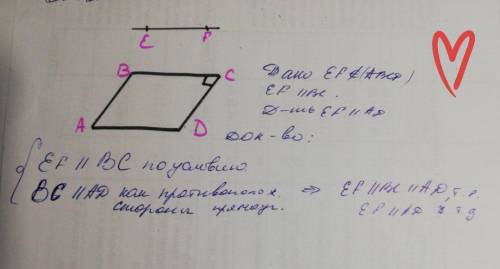 E F
B C
Дано EF ⊄ (ABCD)
EF || BC.
Д-ть EF || AD
A D
Док-во:
EF || BC по условию
BC || AD как противополож. ⇒ EF || BC || AD, т.е.
стороны прямоуг. EF || AD ч.т.д